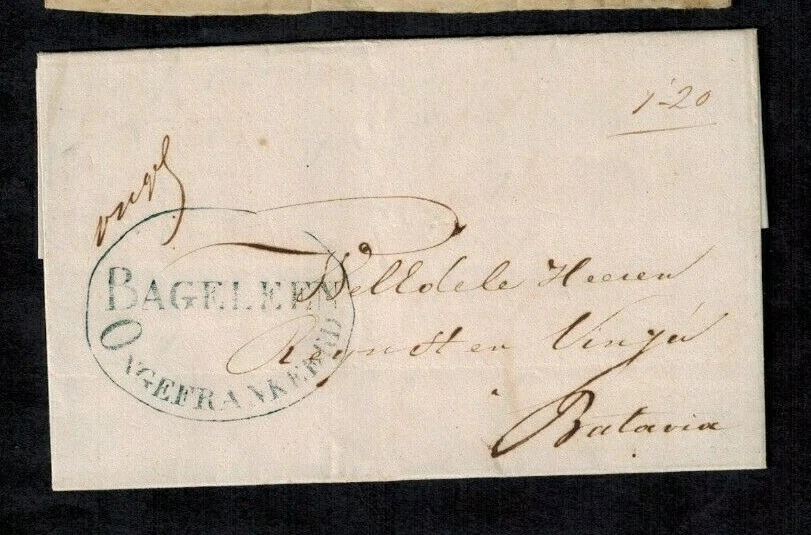 1-20
ongef
BAGELEEN
ONGEFRANKEERD
WelEdele Heeren
Reynst en Vinju
Batavia